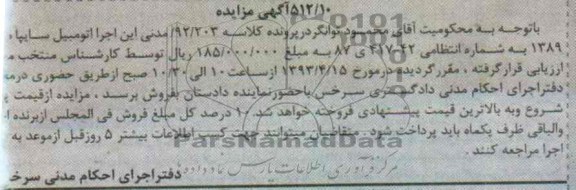 ۵۱۲/۱۰آگهی مزایده
باتوجه به محکومیت آقای توانگردرپرونده کلاسه ۹۲/۲۰۳مدنی این اجرا اتومبیل سایپا
۱۳۸۹ به شماره انتظامی ۴۲-۴۱۷ ی ۸۷ به مبلغ ۱۸۵/۰۰۰/۰۰۰ ریال توسط کارشناس منتخب
ارزیابی قرارگرفته ، مقررگردید درمورخ ۱۳۹۳/۴/۱۵ ازساعت۱۰ الی۱۰/۳۰ صبح ازطریق حضوری
دفتراجرای احکام مدنی دادگستری سرخس باحضورنماینده دادستان بفروش برسد . مزایده ازقیمت
شروع وبه بالاترین قیمت پیشنهادی فروخته خواهد شد. ۱۰ درصد کل مبلغ فروش فی المجلس ازبرنده
والباقی ظرف یکماه باید پرداخت شود . متقاضیان میتوانند جهت کسب اطلاعات بیشتر ۵ روزقبل ازموعد به
اجرا مراجعه کنند .
دفتراجرای احکام مدنی
ParsNamadData
مرکز فرآوری اطلاعات پارس نماد داده